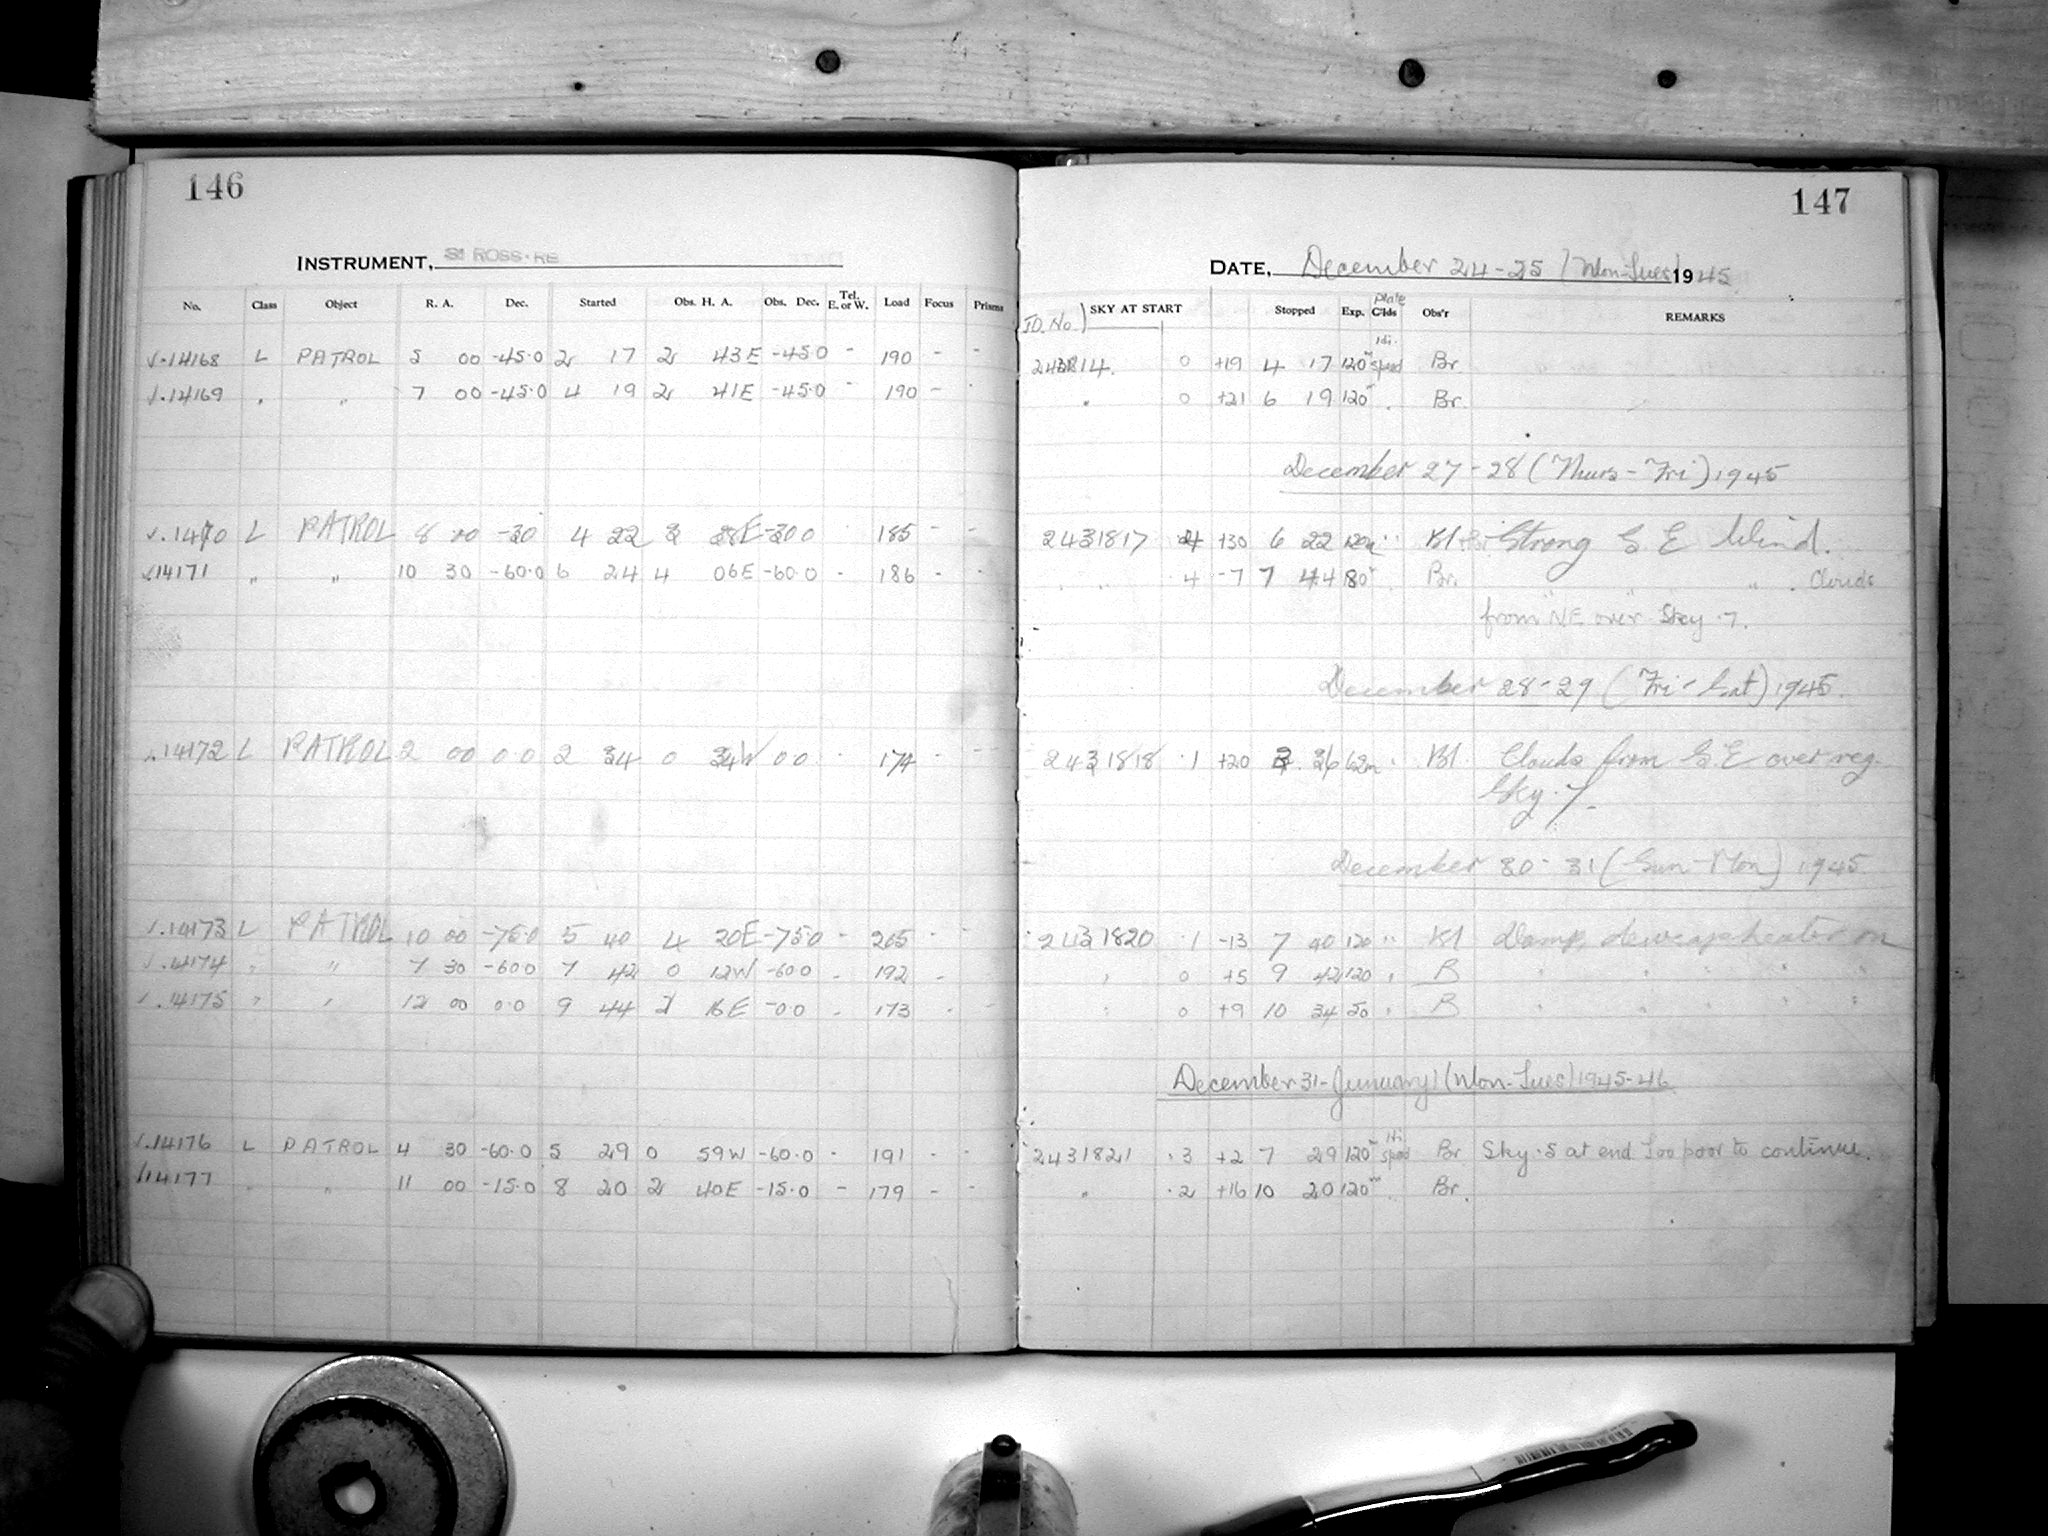 146
INSTRUMENT, ROSS-RB
No. Class Object R. A. Dec. Started Obs. H. A. Obs. Dec. Tel. E. or W. Load Focus Prisms
14168 L PATROL 5 00 -45.0 2 17 2 43E -45.0 - 190 - -
14169 " " 7 00 -45.0 4 19 2 41E -45.0 - 190 - -
1470 L PATROL 8 00 -30 4 22 3 28E -30 0 185 - -
14171 " " 10 30 -60.0 6 24 4 06E -60.0 - 186 - -
14172 L PATROL 2 00 0.0 2 34 0 34W 0.0 - 174 - -
14173 L PATROL 10 00 -75.0 5 40 4 20E -75.0 - 265 - -
14174 " " 7 30 -60.0 7 42 0 12W -60.0 - 192 -
14175 " " 12 00 0.0 9 44 2 16E -0.0 - 173 - -
14176 L PATROL 4 30 -60.0 5 29 0 59W -60.0 - 191 - -
14177 " " 11 00 -15.0 8 20 2 40E -15.0 - 179 - -
147
DATE, December 24-25 (Mon-Tues) 1945
J.D. No. SKY AT START Stopped Exp. Plate C'lds Obs'r REMARKS
2431814. 0 +19 4 17 120m Hi. speed Br.
" 0 +21 6 19 120m " Br.
December 27-28 (Thurs-Fri) 1945
2431817 +30 6 22 120m " Bl Strong S.E Wind.
" " .4 -7 7 44 80m " Br. " " " " Clouds
from NE over Sky .7.
December 28-29 (Fri-Sat) 1945.
2431818 .1 +20 3 36 62m " Bl. Clouds from S.E over reg.
Sky .7.
December 30-31 (Sun-Mon) 1945
2431820 .1 -13 7 40 120 " Bl Damp, dewcap heater on
" 0 +5 9 42 120 " B " " " " "
" 0 +9 10 34 50 " B " " " "
December 31-January 1 (Mon-Tues) 1945-46
2431821 .3 +2 7 29 120m Hi speed Br Sky .5 at end Too poor to continue.
" .2 +16 10 20 120m " Br.